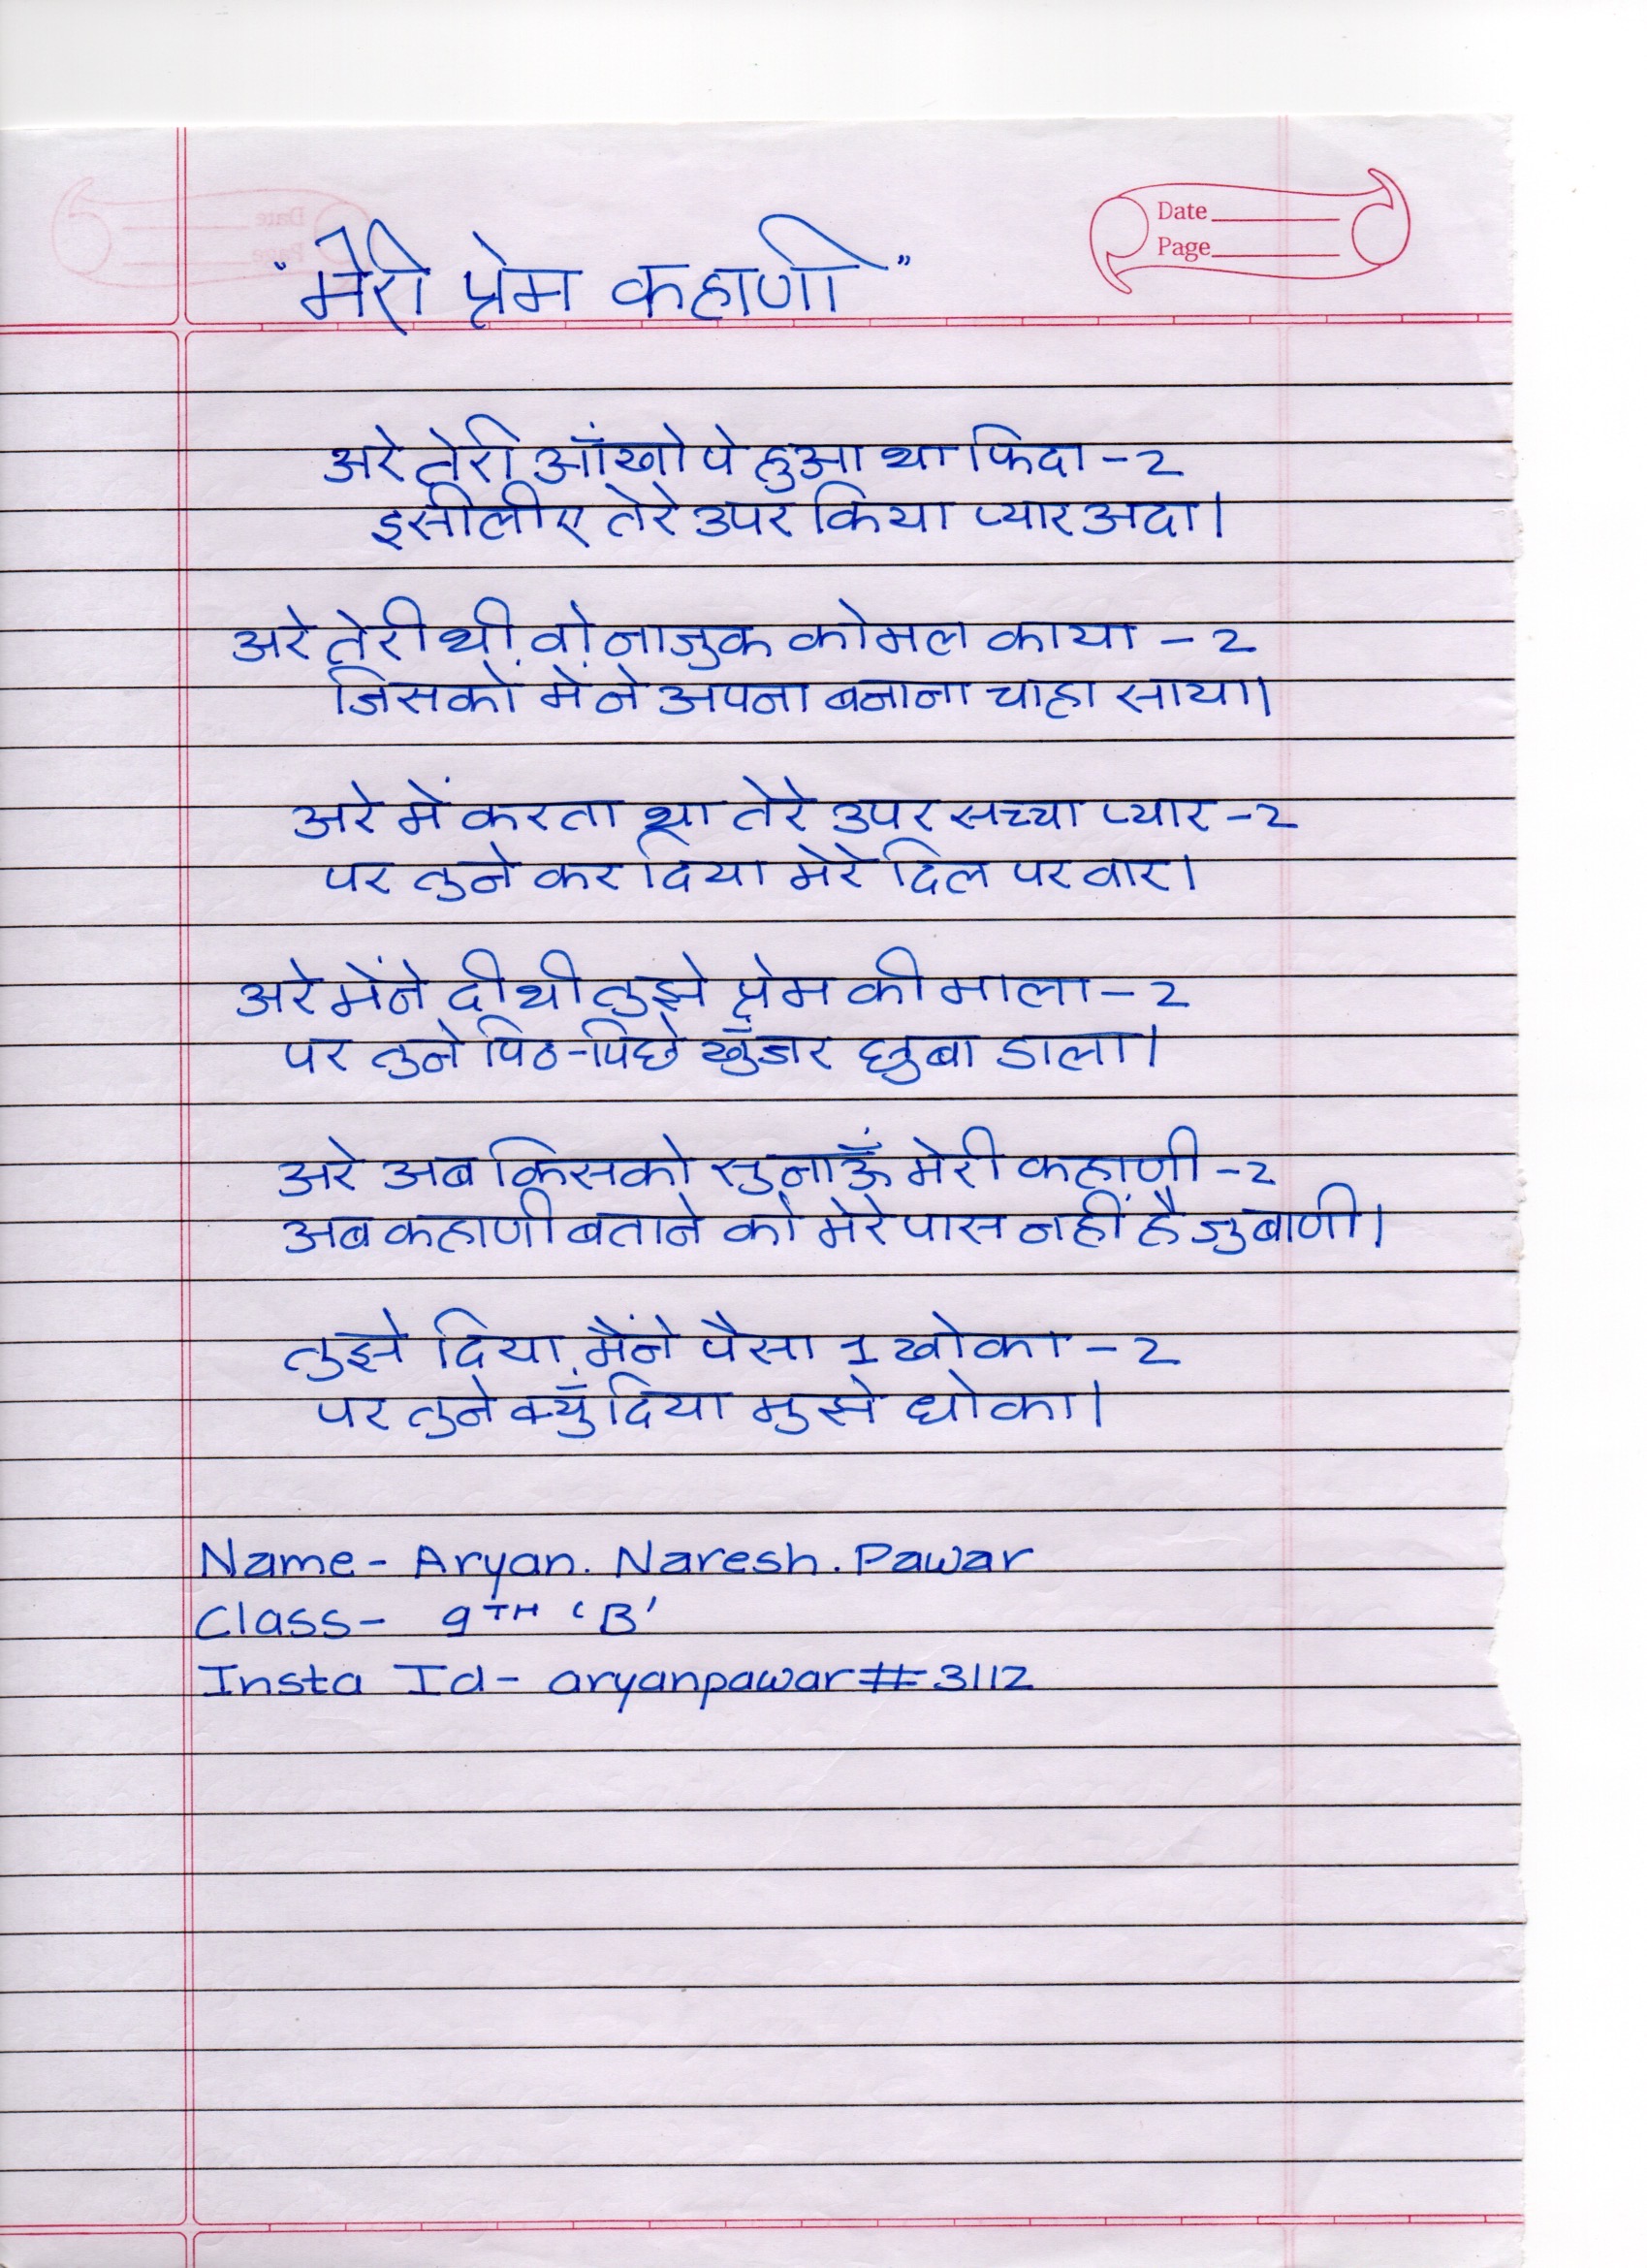 Date
Page
"मेरी प्रेम कहाणी"
अरे तेरी आँखो पे हुआ था फिदा - 2
इसीलीए तेरे उपर किया प्यार अदा।
अरे तेरी थी वो नाजुक कोमल काया - 2
जिसको मेने अपना बनाना चाहा साया।
अरे में करता था तेरे उपर सच्चा प्यार - 2
पर तुने कर दिया मेरे दिल पर वार।
अरे मेंने दी थी तुझे प्रेम की माला - 2
पर तुने पिठ-पिछे खुँजर छुबा डाला।
अरे अब किसको सुनाऊँ मेरी कहाणी - 2
अब कहाणी बताने को मेरे पास नहीं है जुबाणी।
तुझे दिया मैंने पैसा 1 खोका - 2
पर तुने क्युँ दिया मुझे धोका।
Name - Aryan. Naresh. Pawar
Class - 9TH 'B'
Insta Id - aryanpawar#3112